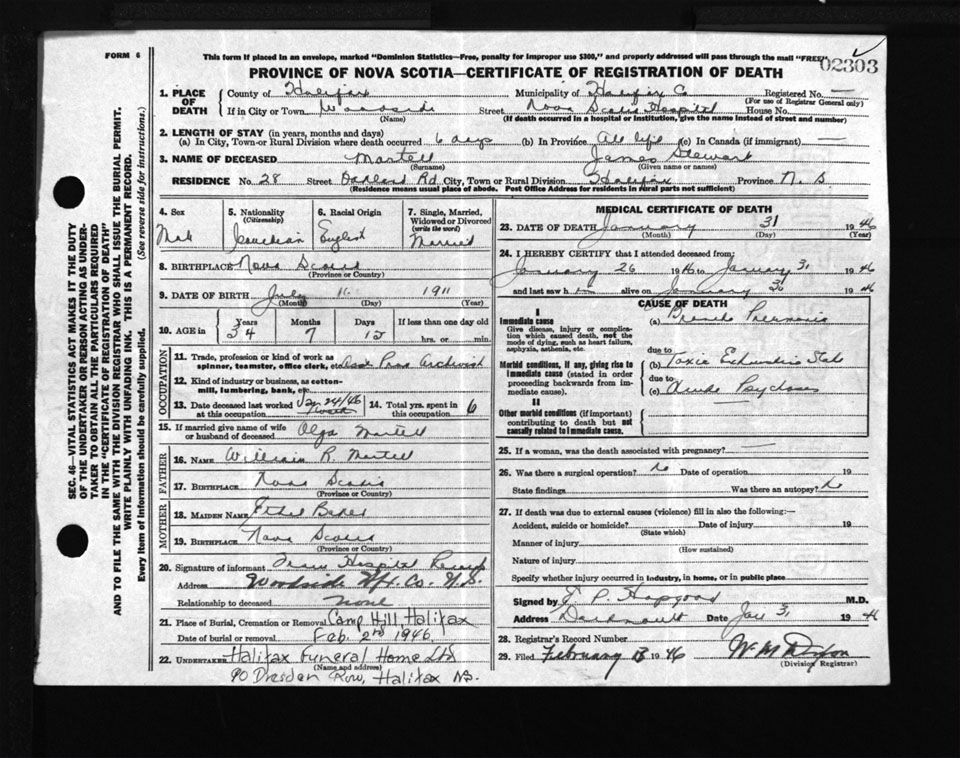 FORM 6
This form if placed in an envelope, marked "Dominion Statistics—Free, penalty for improper use $300," and properly addressed will pass through the mail "FREE"
02303
PROVINCE OF NOVA SCOTIA—CERTIFICATE OF REGISTRATION OF DEATH
SEC. 46—VITAL STATISTICS ACT MAKES IT THE DUTY
OF THE UNDERTAKER OR PERSON ACTING AS UNDER-
TAKER TO OBTAIN ALL THE PARTICULARS REQUIRED
IN THE "CERTIFICATE OF REGISTRATION OF DEATH"
AND TO FILE THE SAME WITH THE DIVISION REGISTRAR WHO SHALL ISSUE THE BURIAL PERMIT.
WRITE PLAINLY WITH UNFADING INK. THIS IS A PERMANENT RECORD.
Every item of Information should be carefully supplied. (See reverse side for instructions.)
1. PLACE OF DEATH
County of Halifax Municipality of Halifax Co Registered No. —
(For use of Registrar General only)
If in City or Town Woodside Street Nova Scotia Hospital House No.
(Name) (If death occurred in a hospital or institution, give the name instead of street and number)
2. LENGTH OF STAY (in years, months and days)
(a) In City, Town or Rural Division where death occurred 6 days (b) In Province All life (c) In Canada (if immigrant) —
3. NAME OF DECEASED Martell James Stewart
(Surname) (Given name or names)
RESIDENCE No. 28 Street Oakland Rd. City, Town or Rural Division Halifax Province N. S.
(Residence means usual place of abode. Post Office Address for residents in rural parts not sufficient)
4. Sex Male
5. Nationality (Citizenship) Canadian
6. Racial Origin English
7. Single, Married, Widowed or Divorced (write the word) Married
8. BIRTHPLACE Nova Scotia
(Province or Country)
9. DATE OF BIRTH July 1911
(Month) (Day) (Year)
10. AGE in Years 34 Months 7 Days 12 If less than one day old hrs. or min.
OCCUPATION
11. Trade, profession or kind of work as spinner, teamster, office clerk, etc. Asst Prov Archivist
12. Kind of industry or business, as cotton-mill, lumbering, bank, etc.
13. Date deceased last worked at this occupation Jan 24/46
14. Total yrs. spent in this occupation 6
15. If married give name of wife or husband of deceased Olga Martell
FATHER
16. NAME William R. Martell
17. BIRTHPLACE Nova Scotia
(Province or Country)
MOTHER
18. MAIDEN NAME Ethel Baker
19. BIRTHPLACE Nova Scotia
(Province or Country)
20. Signature of informant From Hospital Records
Address Woodside Hfx. Co. N.S.
Relationship to deceased none
21. Place of Burial, Cremation or Removal Camp Hill, Halifax
Date of burial or removal Feb. 2nd 1946.
22. UNDERTAKER Halifax Funeral Home Ltd
(Name and address)
90 Dresden Row, Halifax NS.
MEDICAL CERTIFICATE OF DEATH
23. DATE OF DEATH January 31 1946
(Month) (Day) (Year)
24. I HEREBY CERTIFY that I attended deceased from:
January 26 1946 to January 31 1946
and last saw him alive on January 31 1946
CAUSE OF DEATH
I
Immediate cause
Give disease, injury or complication which caused death, not the mode of dying, such as heart failure, asphyxia, asthenia, etc.
(a) Broncho Pneumonia
due to
Morbid conditions, if any, giving rise to immediate cause (stated in order proceeding backwards from immediate cause).
(b) Toxic Exhaustion State
due to
(c) Acute Psychoses
II
Other morbid conditions (if important) contributing to death but not causally related to immediate cause.
25. If a woman, was the death associated with pregnancy? —
26. Was there a surgical operation? No Date of operation 19
State findings Was there an autopsy? No
27. If death was due to external causes (violence) fill in also the following:—
Accident, suicide or homicide? Date of injury 19
(State which)
Manner of injury
(How sustained)
Nature of injury
Specify whether injury occurred in industry, in home, or in public place
Signed by E. P. Hapgood M.D.
Address Dartmouth Date Jan 31 1946
28. Registrar's Record Number
29. Filed February 1946
(Division Registrar)